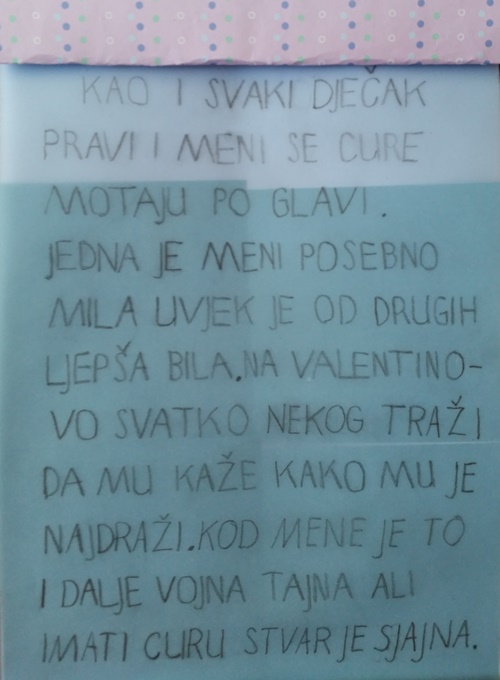 KAO I SVAKI DJEČAK
PRAVI I MENI SE CURE
MOTAJU PO GLAVI.
JEDNA JE MENI POSEBNO
MILA UVJEK JE OD DRUGIH
LJEPŠA BILA.NA VALENTINO-
VO SVATKO NEKOG TRAŽI
DA MU KAŽE KAKO MU JE
NAJDRAŽI.KOD MENE JE TO
I DALJE VOJNA TAJNA ALI
IMATI CURU STVAR JE SJAJNA.